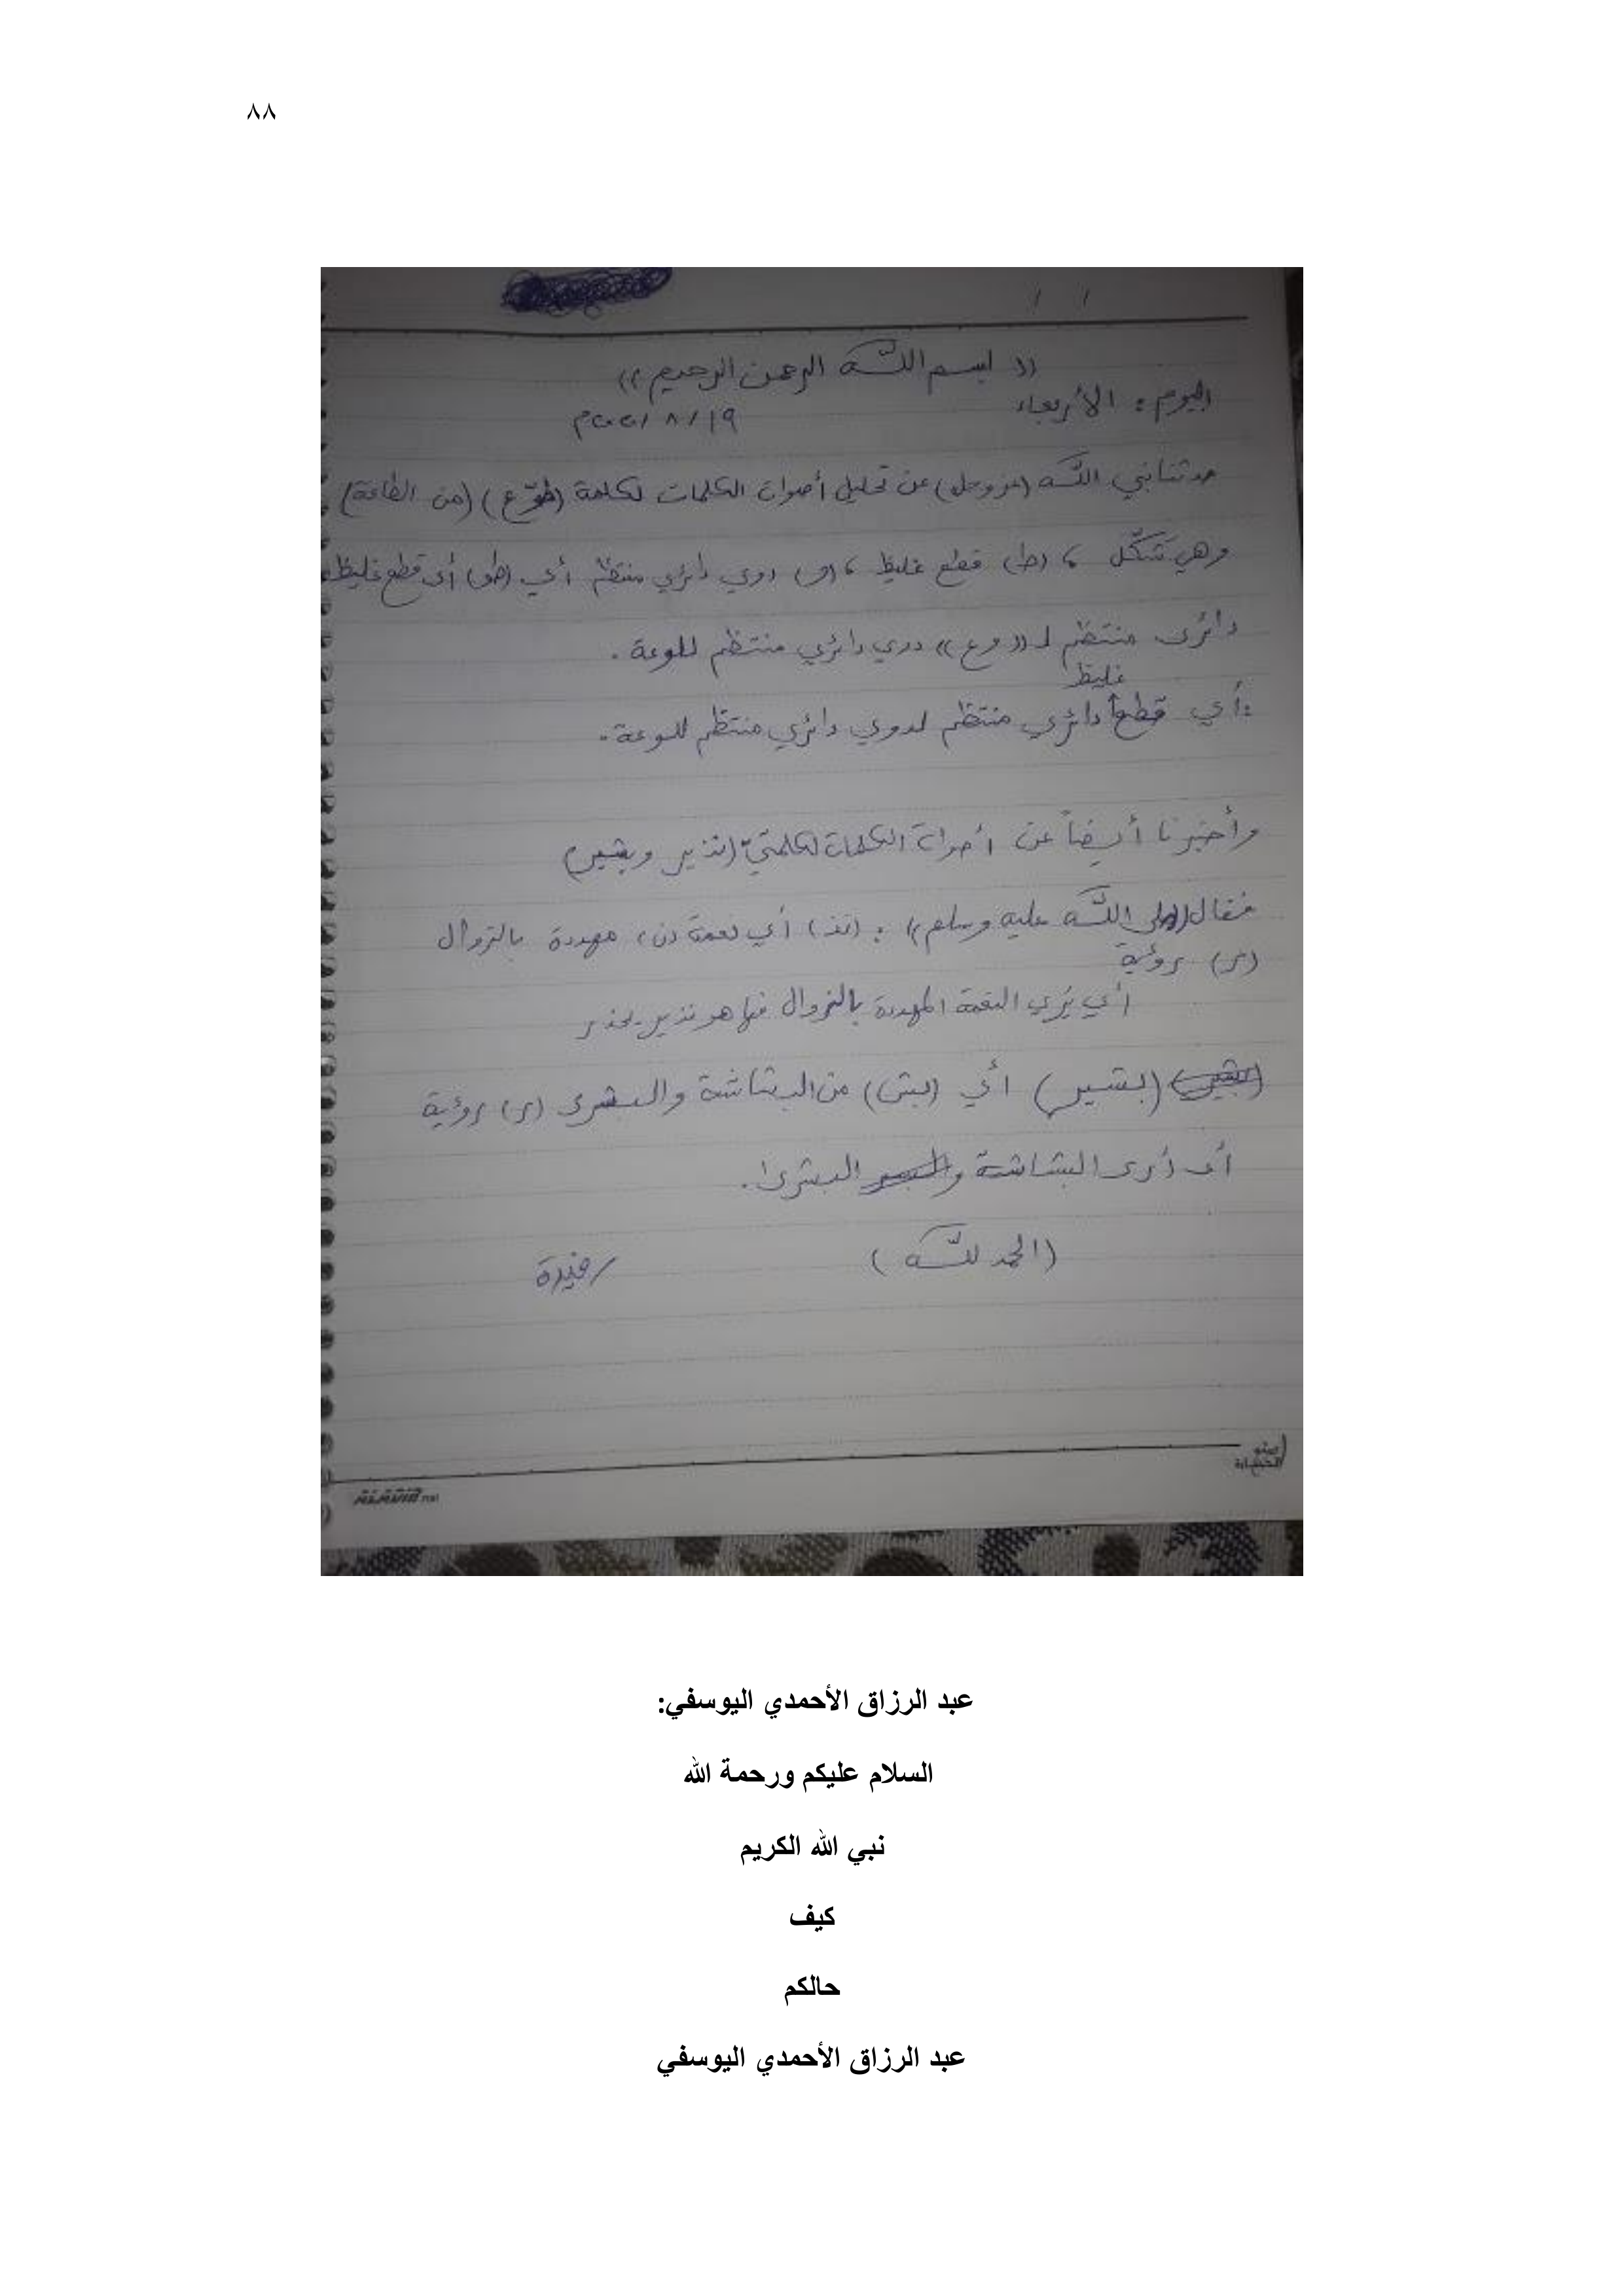 ٨٨
(( بسم اللّه الرحمن الرحيم ))
اليوم: الأربعاء
١٩ / ٨ /
حدثنا نبي اللّه (عزوجل) عن تحليل أصوات الكلمات لكلمة (طوّع) (من الطاعة)
وهي تشكّل ، (ط) قطع غليظ ، (و) دوي دائري منتظم أي (طو) أي قطع غليظ
دائرى منتظم لـ ((وع)) دوي دائري منتظم للوعة .
غليظ
:أي قطع دائري منتظم لدوي دائري منتظم للوعة.
وأخبرنا أيضاً عن أصوات الكلمات لكلمتيّ (نذير وبشير)
فقال ((صلى اللّه عليه وسلم)) : (نذ) أي نعمة (ن) مهددة بالزوال
(ر) رؤية
أي يُري النعمة المهددة بالزوال فها هو نذير يحذر
(بشير) أي (بش) من البشاشة والبشرى (ر) رؤية
أى أرى البشاشة و البشرى.
(الحمد للّه)
صنع
عبد الرزاق الأحمدي اليوسفي:
السلام عليكم ورحمة الله
نبي الله الكريم
كيف
حالكم
عبد الرزاق الأحمدي اليوسفي